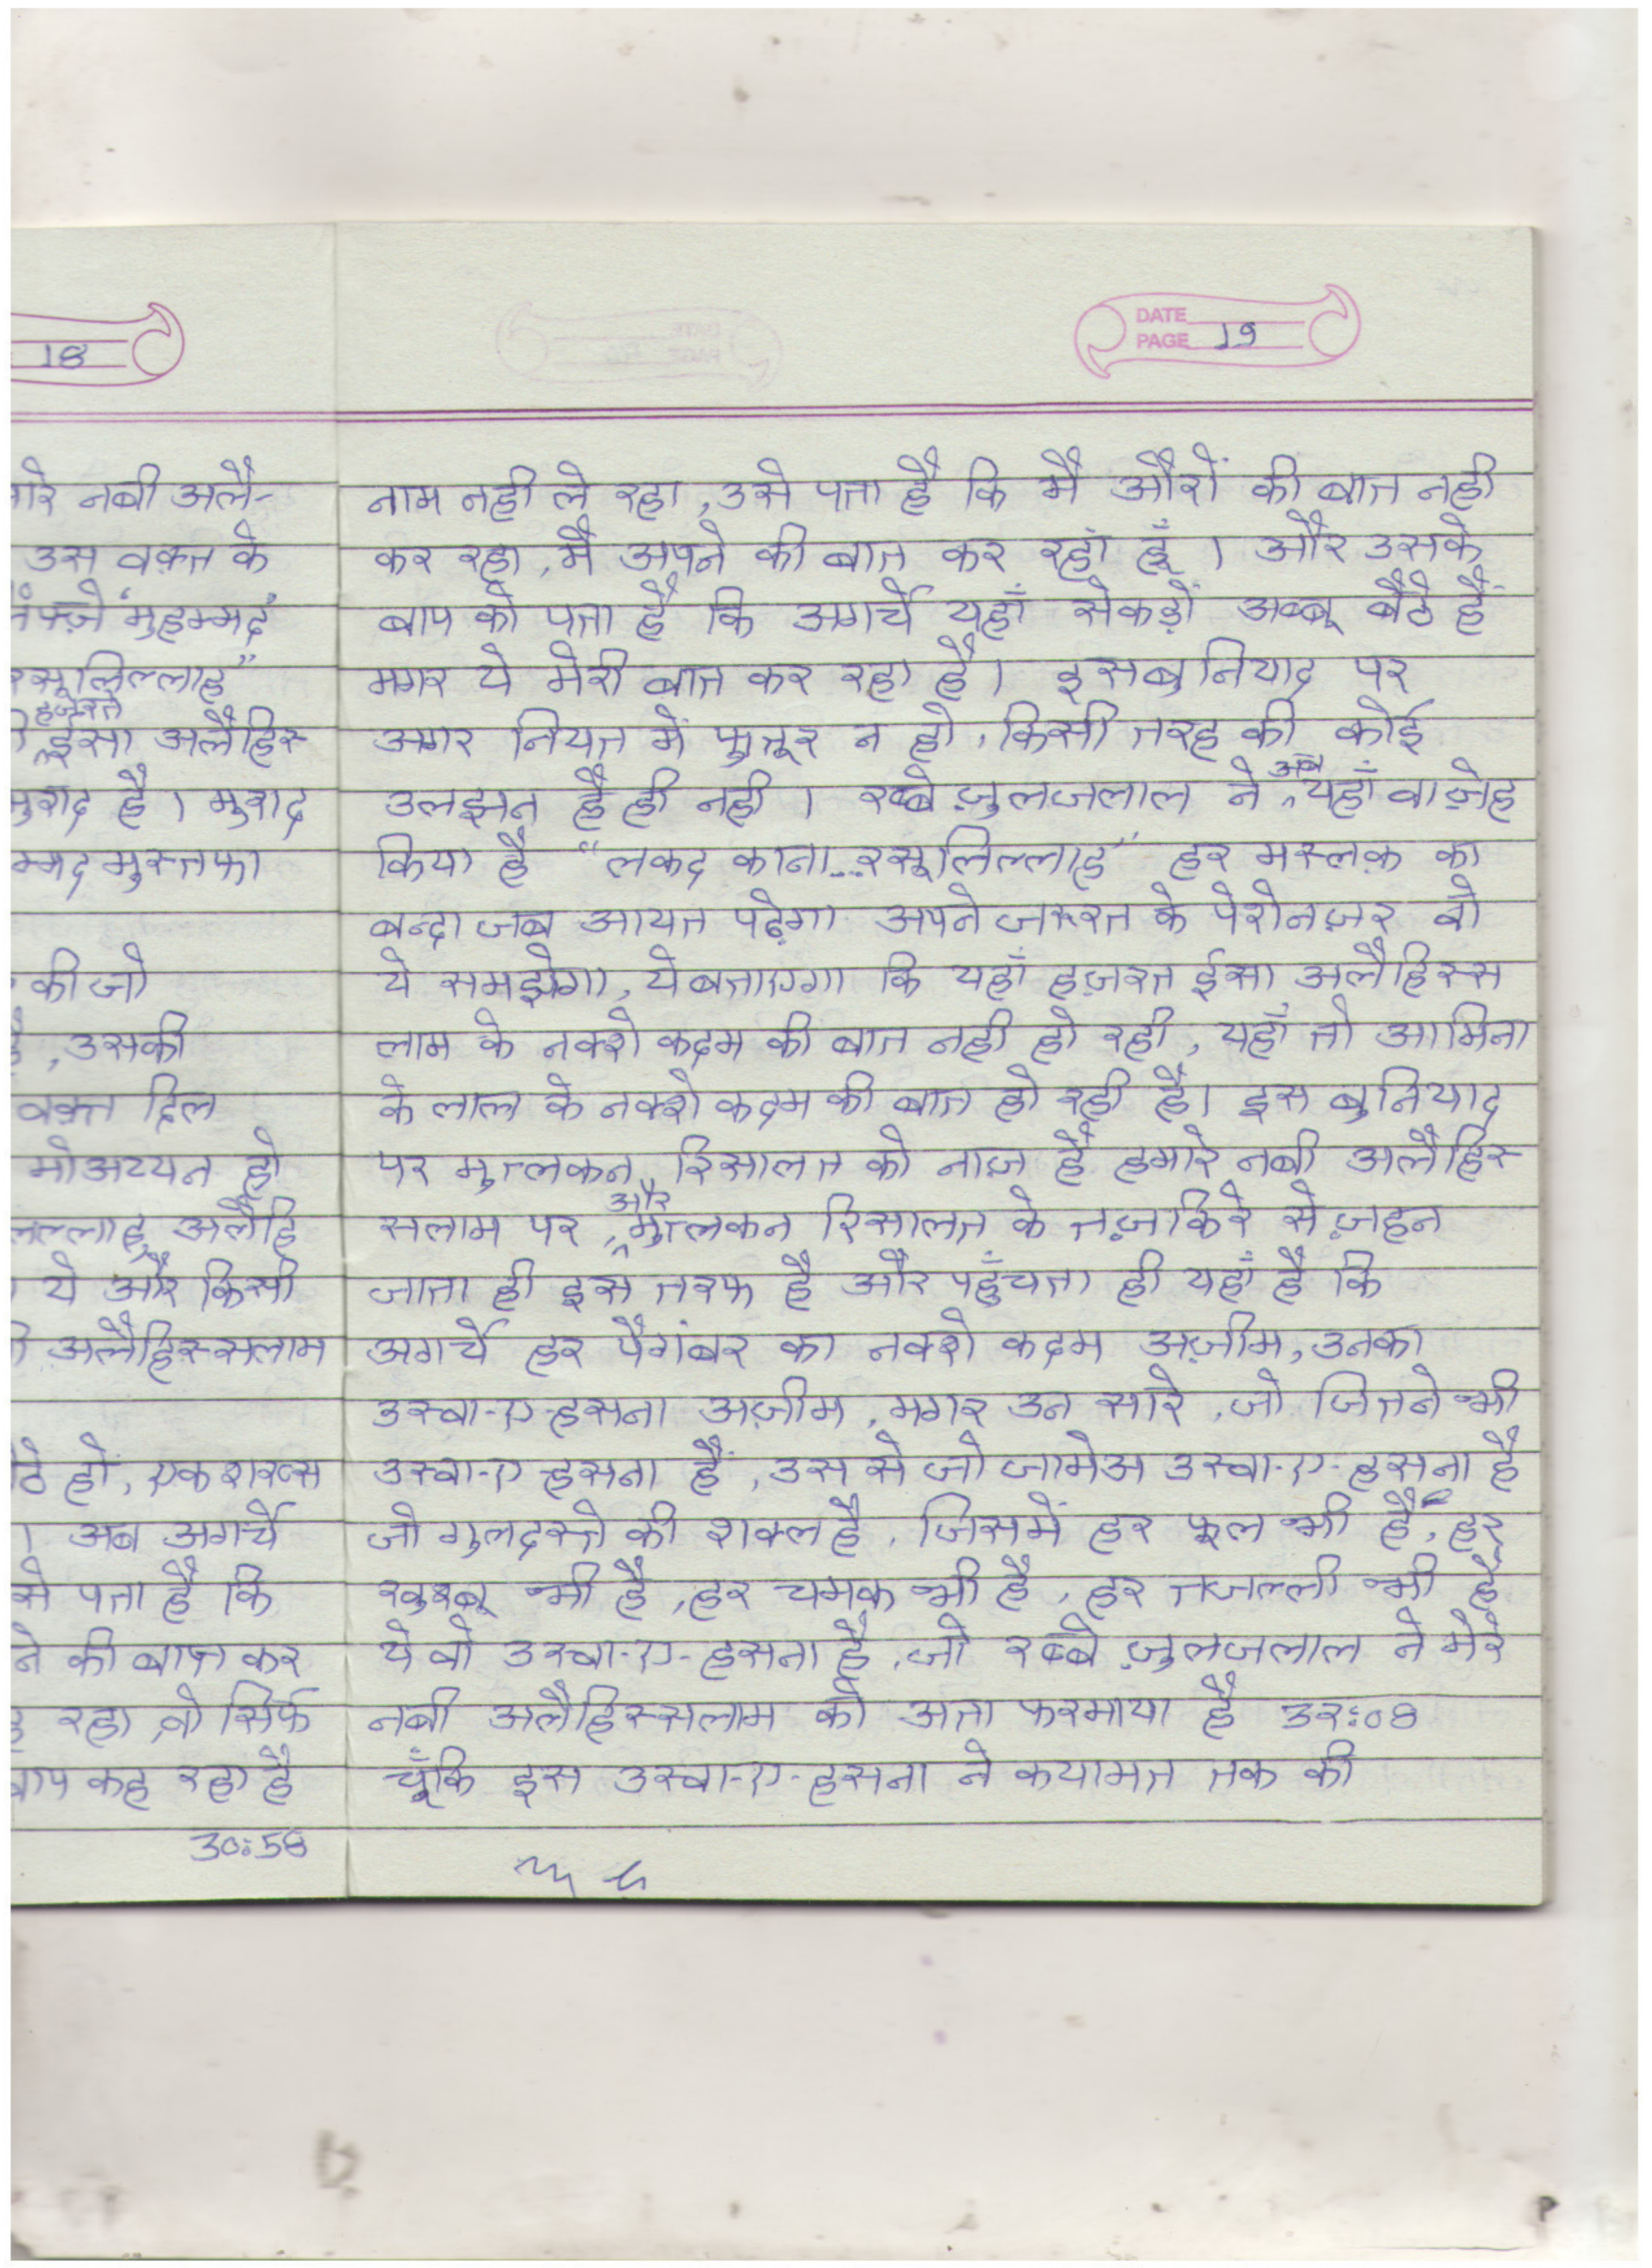 18
ारे नबी अलै-
उस वक़्त के
"मुहम्मद"
रसूलिल्लाह"
हज़रत
ईसा अलैहिस
मुराद है। मुराद
म्मद मुस्तफा
की जो
, उसकी
वक़्त दिल
मोअय्यन हो
लल्लाहु अलैहि
ये और किसी
अलैहिस्सलाम
ठे हों, एक शख्स
। अब अगर्चे
से पता है कि
ने की बात कर
रहा, वो सिर्फ
बाप कह रहा है
30:58
DATE
PAGE 19
नाम नही ले रहा, उसे पता है कि मैं औरों की बात नही
कर रहा, मैं अपने की बात कर रहा हूँ । और उसके
बाप को पता है कि अगर्चे यहाँ सेकड़ों अब्बू बैठे हैं
मगर ये मेरी बात कर रहा है। इसबुनियाद पर
अगर नियत में फुतूर न हो, किसी तरह की कोई
उलझन है ही नही । रब्बे ज़ुलजलाल ने अब यहाँ वाज़ेह
किया है "लकद काना...रसूलिल्लाह" हर मस्लक़ का
बन्दा जब आयत पढ़ेगा अपने जरूरत के पेशेनज़र वो
ये समझेगा, ये बताएगा कि यहाँ हज़रत ईसा अलैहिस्स
लाम के नक्शे कदम की बात नही हो रही, यहाँ तो आमिना
के लाल के नक्शे कदम की बात हो रही है। इस बुनियाद
पर मुत्लकन रिसालत को नाज़ है हमारे नबी अलैहिस-
सलाम पर, और मुत्लकन रिसालत के तज़किरे से ज़हन
जाता ही इस तरफ है और पहुँचता ही यहाँ है कि
अगर्चे हर पैगंबर का नक्शे कदम अज़ीम, उनका
उस्वा-ए-हसना अज़ीम, मगर उन सारे, जो जितने भी
उस्वा-ए-हसना हैं, उस से जो जामेअ उस्वा-ए-हसना है
जो गुलदस्ते की शक्ल है, जिसमें हर फूल भी है, हर
खुश्बू भी है, हर चमक भी है, हर तजल्ली भी है
ये वो उस्वा-ए-हसना है, जो रब्बे ज़ुलजलाल ने मेरे
नबी अलैहिस्सलाम को अता फरमाया है 32:08
चूँकि इस उस्वा-ए-हसना ने कयामत तक की